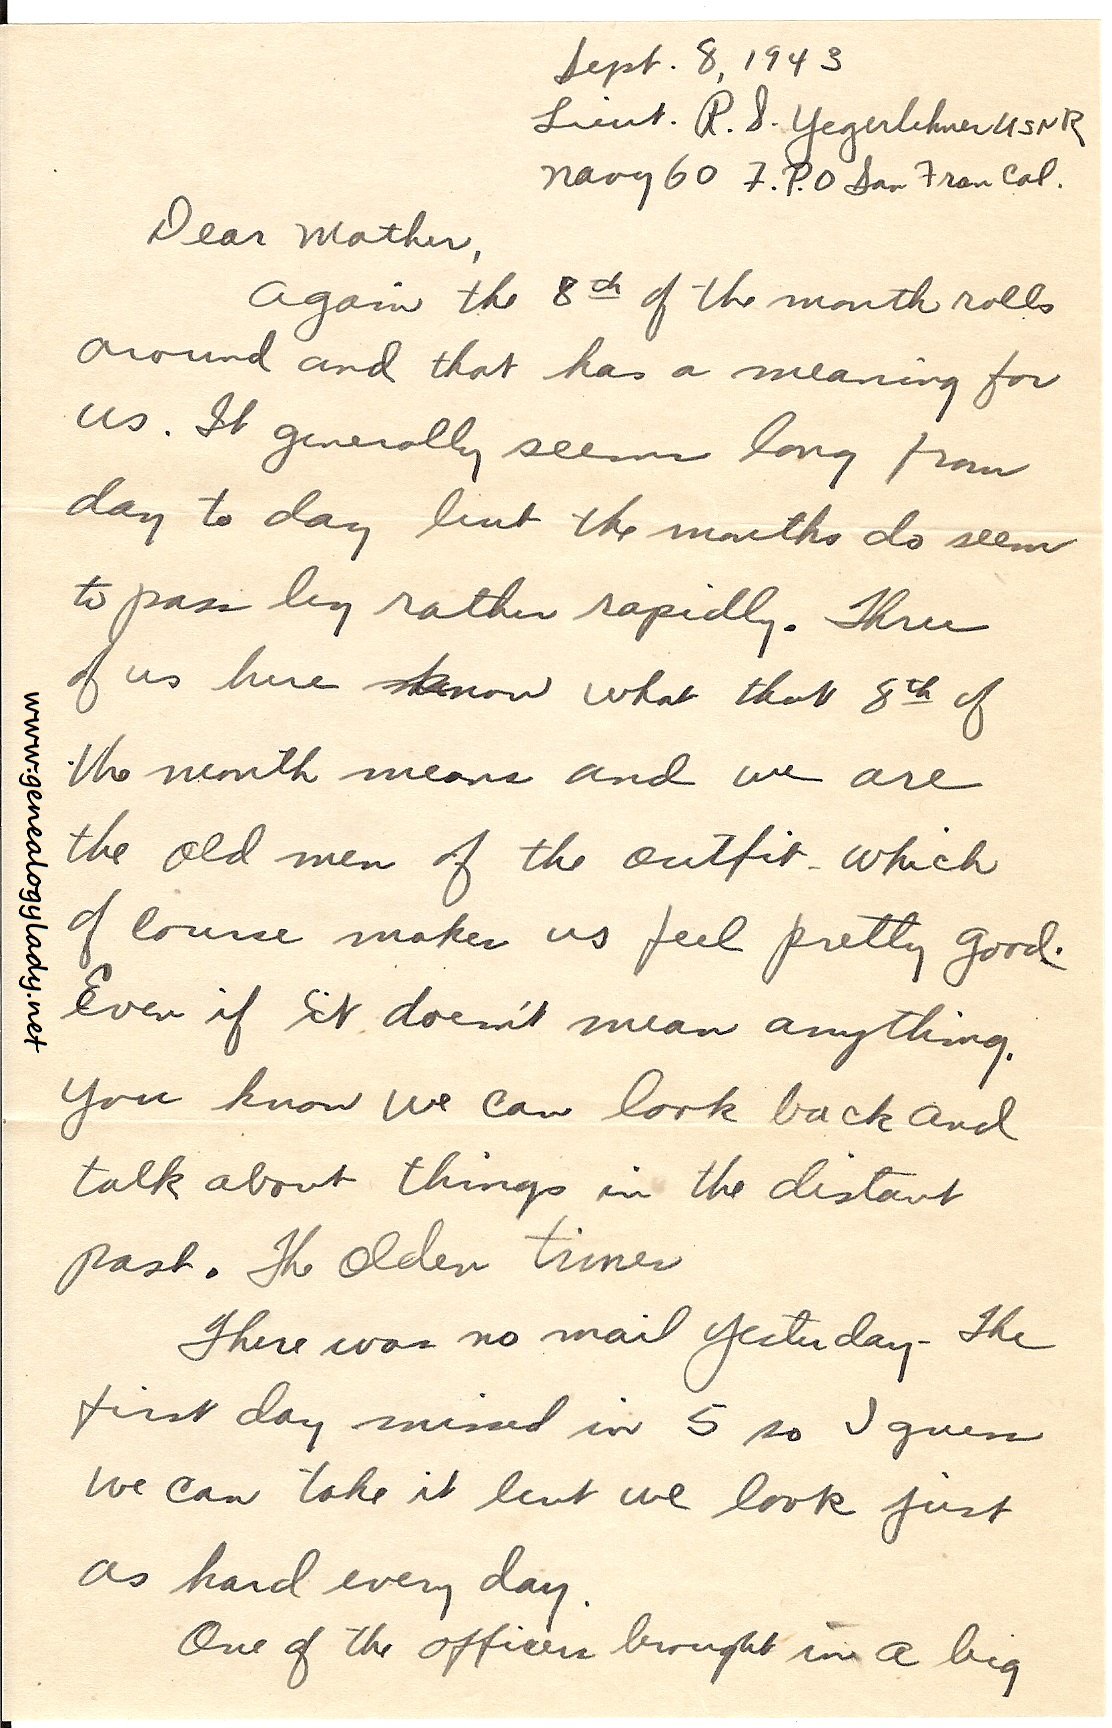 Sept. 8, 1943
Lieut. R. S. Yegerlehner USNR
Navy 60 F.P.O San Fran Cal.
Dear Mother,
Again the 8th of the month rolls
around and that has a meaning for
us. It generally seems long from
day to day but the months do seem
to pass by rather rapidly. Three
of us here know what that 8th of
the month means and we are
the old men of the outfit - which
of course makes us feel pretty good.
Even if it doesn't mean anything.
You know we can look back and
talk about things in the distant
past. The olden times
There was no mail yesterday - The
first day missed in 5 so I guess
we can take it but we look just
as hard every day.
One of the officers brought in a big
www.genealogylady.net